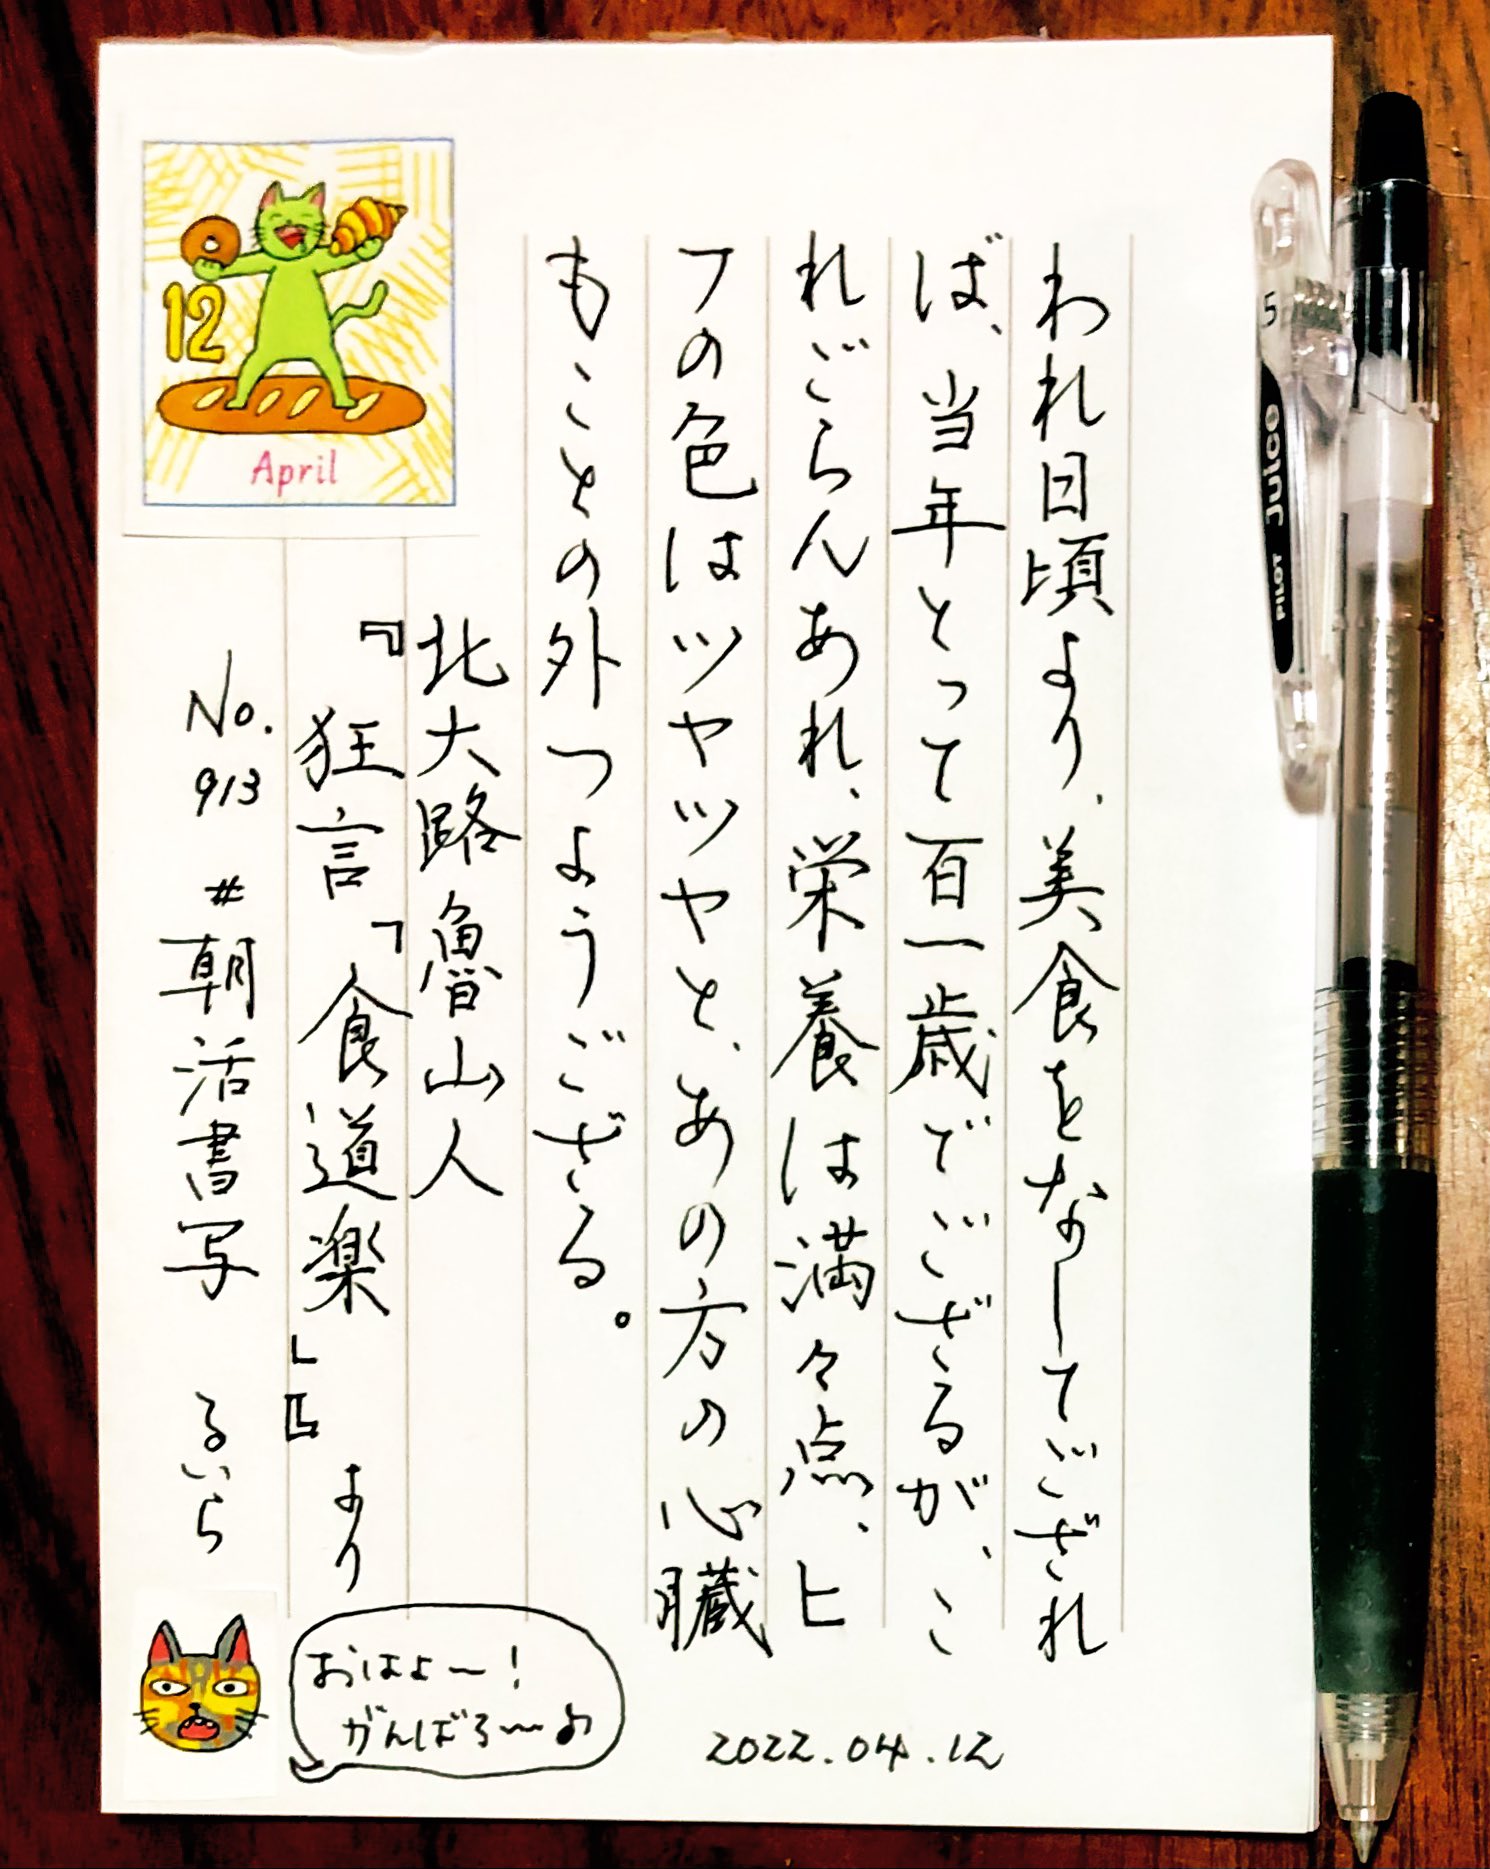 われ日頃より、美食をなしてござれ
ば、当年とって百一歳でござるが、こ
れごらんあれ、栄養は満々点、ヒ
フの色はツヤツヤと、あの方の心臓
もことの外つようござる。
北大路魯山人
『狂言「食道楽」』より
No.913 #朝活書写 るいら
12
April
おはよ〜！
がんばろ〜♪
2022.04.12
5
Juice
PILOT